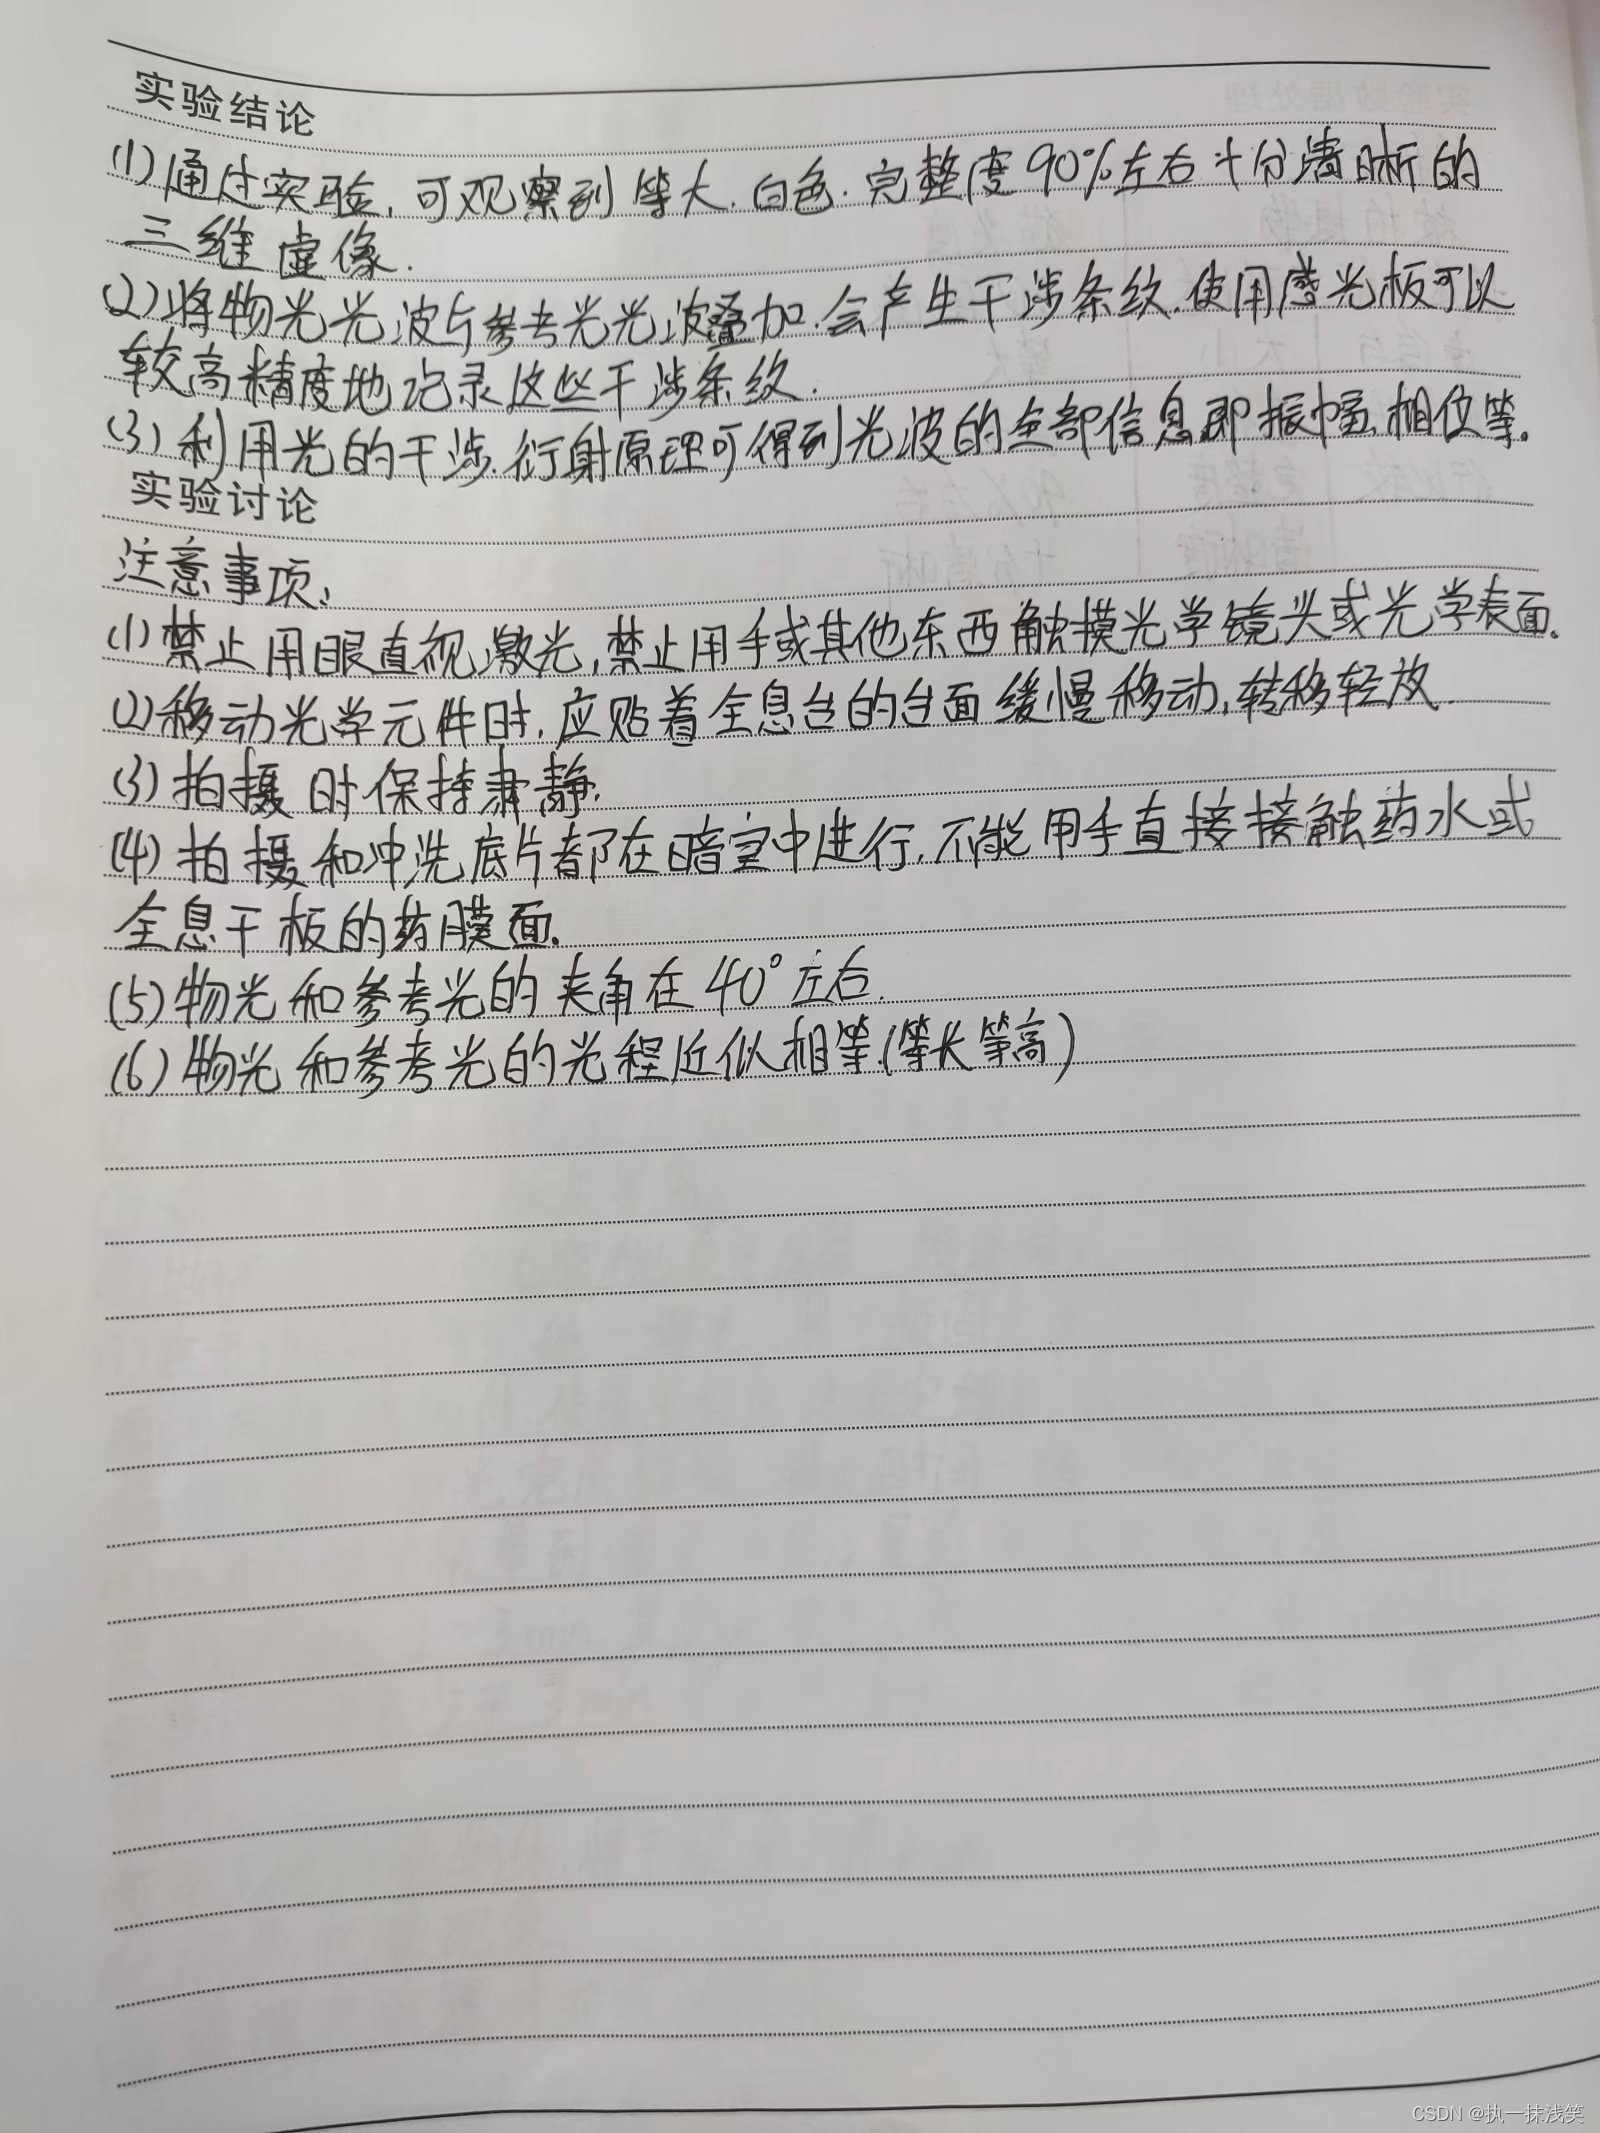 实验结论
(1)通过实验,可观察到等大.白色.完整度90%左右十分清晰的
三维虚像.
(2)将物光光波与参考光光波叠加.会产生干涉条纹.使用感光板可以
较高精度地记录这些干涉条纹.
(3)利用光的干涉.衍射原理可得到光波的全部信息即振幅.相位等.
实验讨论
注意事项:
(1)禁止用眼直视激光,禁止用手或其他东西触摸光学镜头或光学表面.
(2)移动光学元件时,应贴着全息台的台面缓慢移动,转移轻放.
(3)拍摄时保持肃静.
(4)拍摄和冲洗底片都在暗室中进行,不能用手直接接触药水或
全息干板的药膜面.
(5)物光和参考光的夹角在40°左右.
(6)物光和参考光的光程近似相等.(等长等高)
CSDN @执一抹浅笑